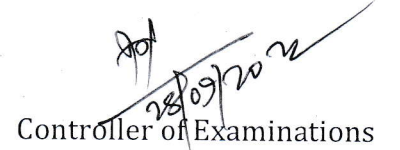 28/09/2022
Controller of Examinations